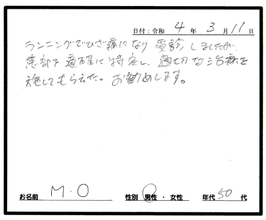 日付：令和 4年 3月 11日
ランニングでひざ痛になり 受診しましたが
患部を適確に特定し、適切な治療を
施してもらえた。お勧めします。
お名前 M.O 性別 男性・女性 年代 50代